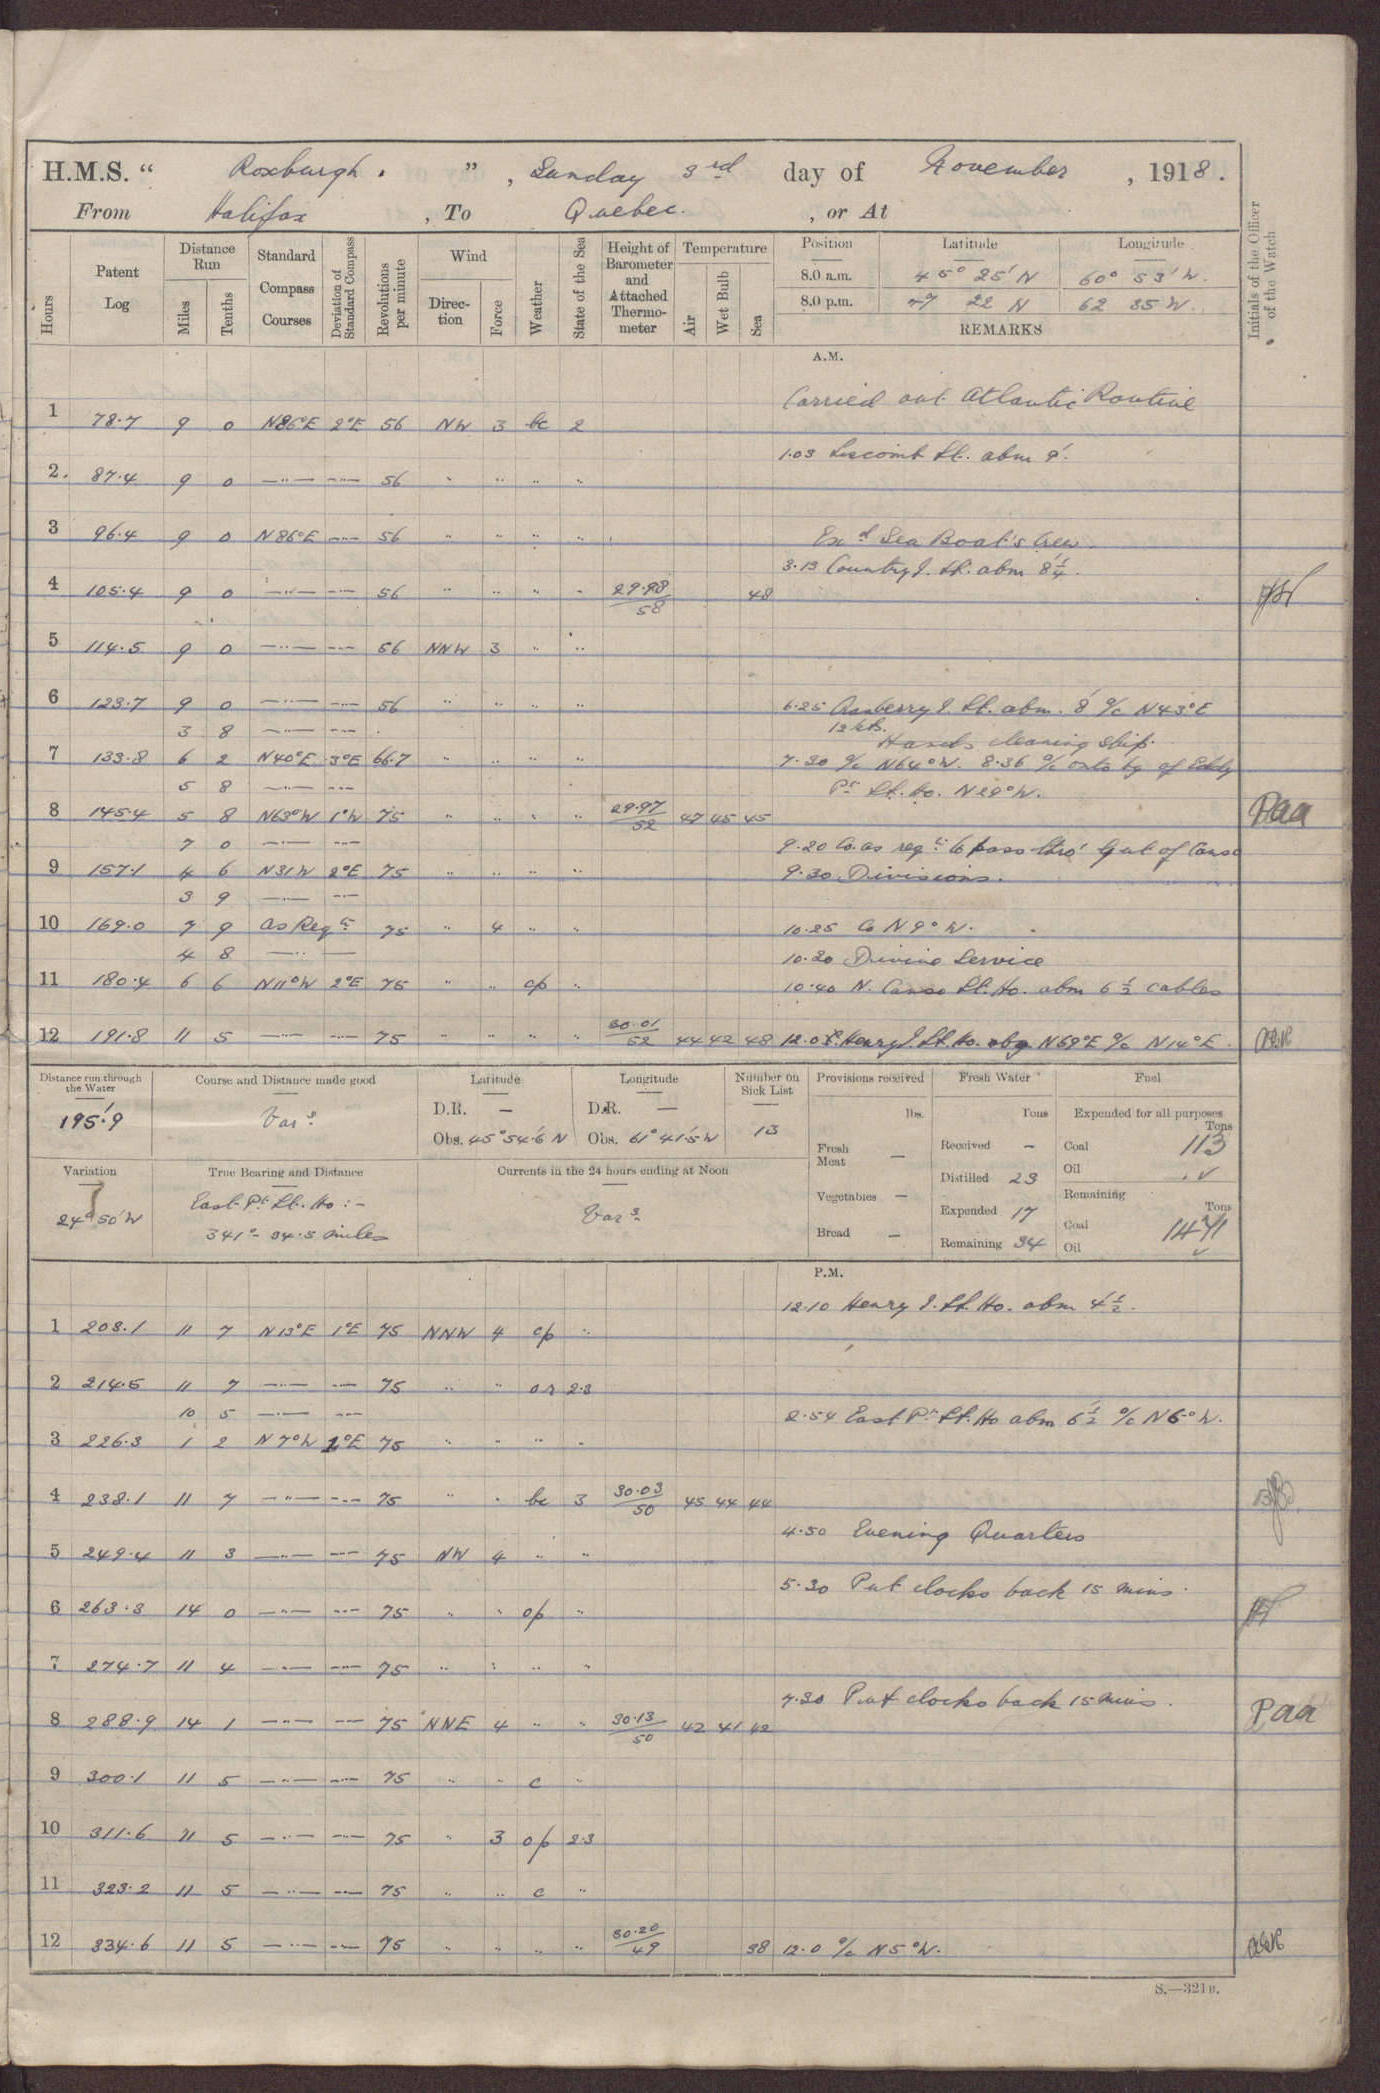 H.M.S. “ Roxburgh. ”, Sunday 3rd day of November, 1918.
From Halifax, To Quebec., or At
Hours
Patent Log
Distance Run
Miles
Tenths
Standard Compass Courses
Deviation of Standard Compass
Revolutions per minute
Wind
Direction
Force
Weather
State of the Sea
Height of Barometer and Attached Thermometer
Temperature
Air
Wet Bulb
Sea
Position Latitude Longitude
8.0 a.m. 45° 25' N 60° 53' W.
8.0 p.m. 47 22 N 62 35 W.
REMARKS
Initials of the Officer of the Watch
A.M.
Carried out Atlantic Routine
1 78.7 9 0 N86°E 2°E 56 NW 3 bc 2
1.03 Liscomb Lt. abm 9'.
2. 87.4 9 0 —"— —"— 56 " " " "
3 96.4 9 0 N86°E —"— 56 " " " "
Exd Sea Boat's Crew.
3.13 Country I. Lt. abm 8¼'.
4 105.4 9 0 —"— —"— 56 " " " " 29.98/58 48
5 114.5 9 0 —"— —"— 56 NNW 3 " "
6 123.7 9 0 —"— —"— 56 " " " "
6.25 Cranberry I. Lt. abm. 8' a/c N43°E
3 8 —"— —"—
12 kts.
Hands cleaning Ship.
7 133.8 6 2 N40°E 3°E 66.7 " " " "
7.30 a/c N64°W. 8.36 a/c onto bg of Eddy
5 8 —"— —"—
Pt Lt. Ho. N29°W.
8 145.4 5 8 N63°W 1°W 75 " " " " 29.97/52 47 45 45
Paa
7 0 —"— —"—
9.20 Co. as reqte to pass thro' Gut of Canso
9 157.1 4 6 N31W 2°E 75 " " " "
9.30 Divisions.
3 9 —"— —"—
10 169.0 7 9 As Reqte 75 " 4 " "
10.25 Co N9°W.
4 8 —"—
10.30 Divine Service
11 180.4 6 6 N11°W 2°E 75 " " cp "
10.40 N. Canso Lt. Ho. abm 6½ cables
12 191.8 11 5 —"— —"— 75 " " " " 30.01/52 44 42 48
12.0 Henry I. Lt. Ho. bg N69°E a/c N14°E.
Distance run through the Water
195.'9
Course and Distance made good
Vars
Latitude
D.R. —
Obs. 45°54.'6 N
Longitude
D.R. —
Obs. 61°41.'5 W
Number on Sick List
13
Provisions received
lbs.
Fresh Meat —
Vegetables —
Bread —
Fresh Water
Tons
Received —
Distilled 23
Expended 17
Remaining 34
Fuel
Expended for all purposes
Tons
Coal 113
Oil
Remaining
Tons
Coal 1471
Oil
Variation
24° 50' W
True Bearing and Distance
East Pt. Lt. Ho :-
341° - 34.5 miles
Currents in the 24 hours ending at Noon
Vars
P.M.
12.10 Henry I. Lt. Ho. abm 4½'.
1 203.1 11 7 N13°E 1°E 75 NNW 4 cp "
2 214.5 11 7 —"— —"— 75 " " or 2.3
10 5 —"— —"—
2.54 East Pt. Lt. Ho abm 6½' a/c N6°W.
3 226.3 1 2 N7°W 2°E 75 " " " "
4 238.1 11 7 —"— —"— 75 " " bc 3 30.03/50 45 44 44
4.50 Evening Quarters
5 249.4 11 3 —"— —"— 75 NW 4 " "
5.30 Put clocks back 15 mins.
6 263.3 14 0 —"— —"— 75 " " op "
7 274.7 11 4 —"— —"— 75 " " " "
7.30 Put clocks back 15 mins.
8 288.9 14 1 —"— —"— 75 NNE 4 " " 30.13/50 42 41 42
Paa
9 300.1 11 5 —"— —"— 75 " " c "
10 311.6 11 5 —"— —"— 75 " 3 op 2.3
11 323.2 11 5 —"— —"— 75 " " c "
12 334.6 11 5 —"— —"— 75 " " " " 30.20/49 38
12.0 a/c N5°W.
S.—321B.